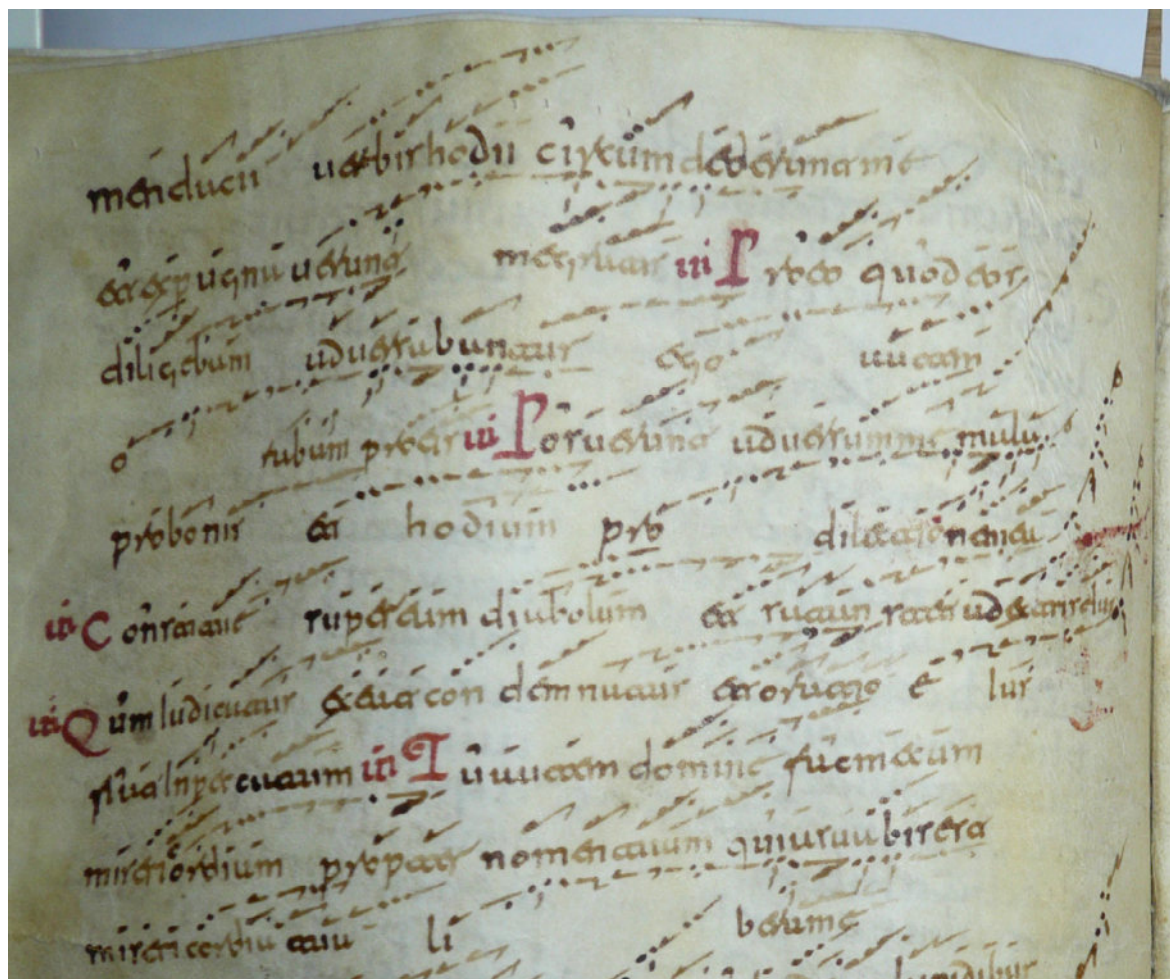 mendacii uerbis hodii circumdederunt me
et expugnauerunt me gratis III Pro eo quod eos
diligebam aduersabantur ego autem
o rabam pro eis III Posuerunt aduersum me mala
pro bonis et hodium pro dilectione mea
III Constitue super eum diabolum et satan stet ad dextris eius
III Qum iudicatur exeat con demnatus et oratio e ius
fiat in peccatum III Tu autem domine fac mecum
misericordiam propter nomen tuum quia suabis est
misericordia tua li bera me